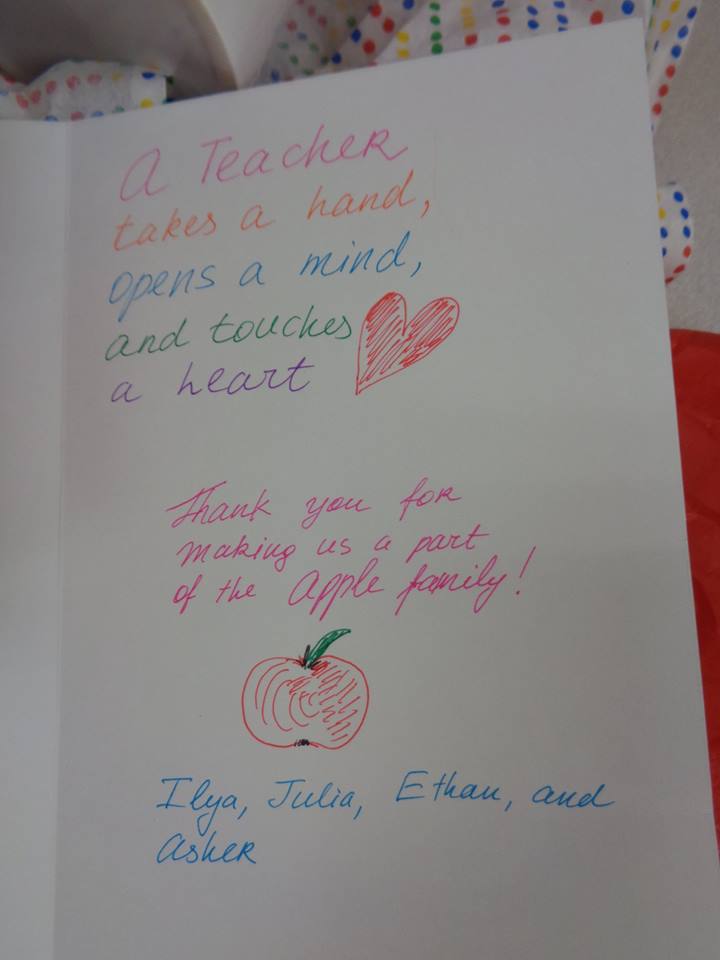 A Teacher
takes a hand,
opens a mind,
and touches
a heart
Thank you for
making us a part
of the Apple family!
Ilya, Julia, Ethan, and
Asher